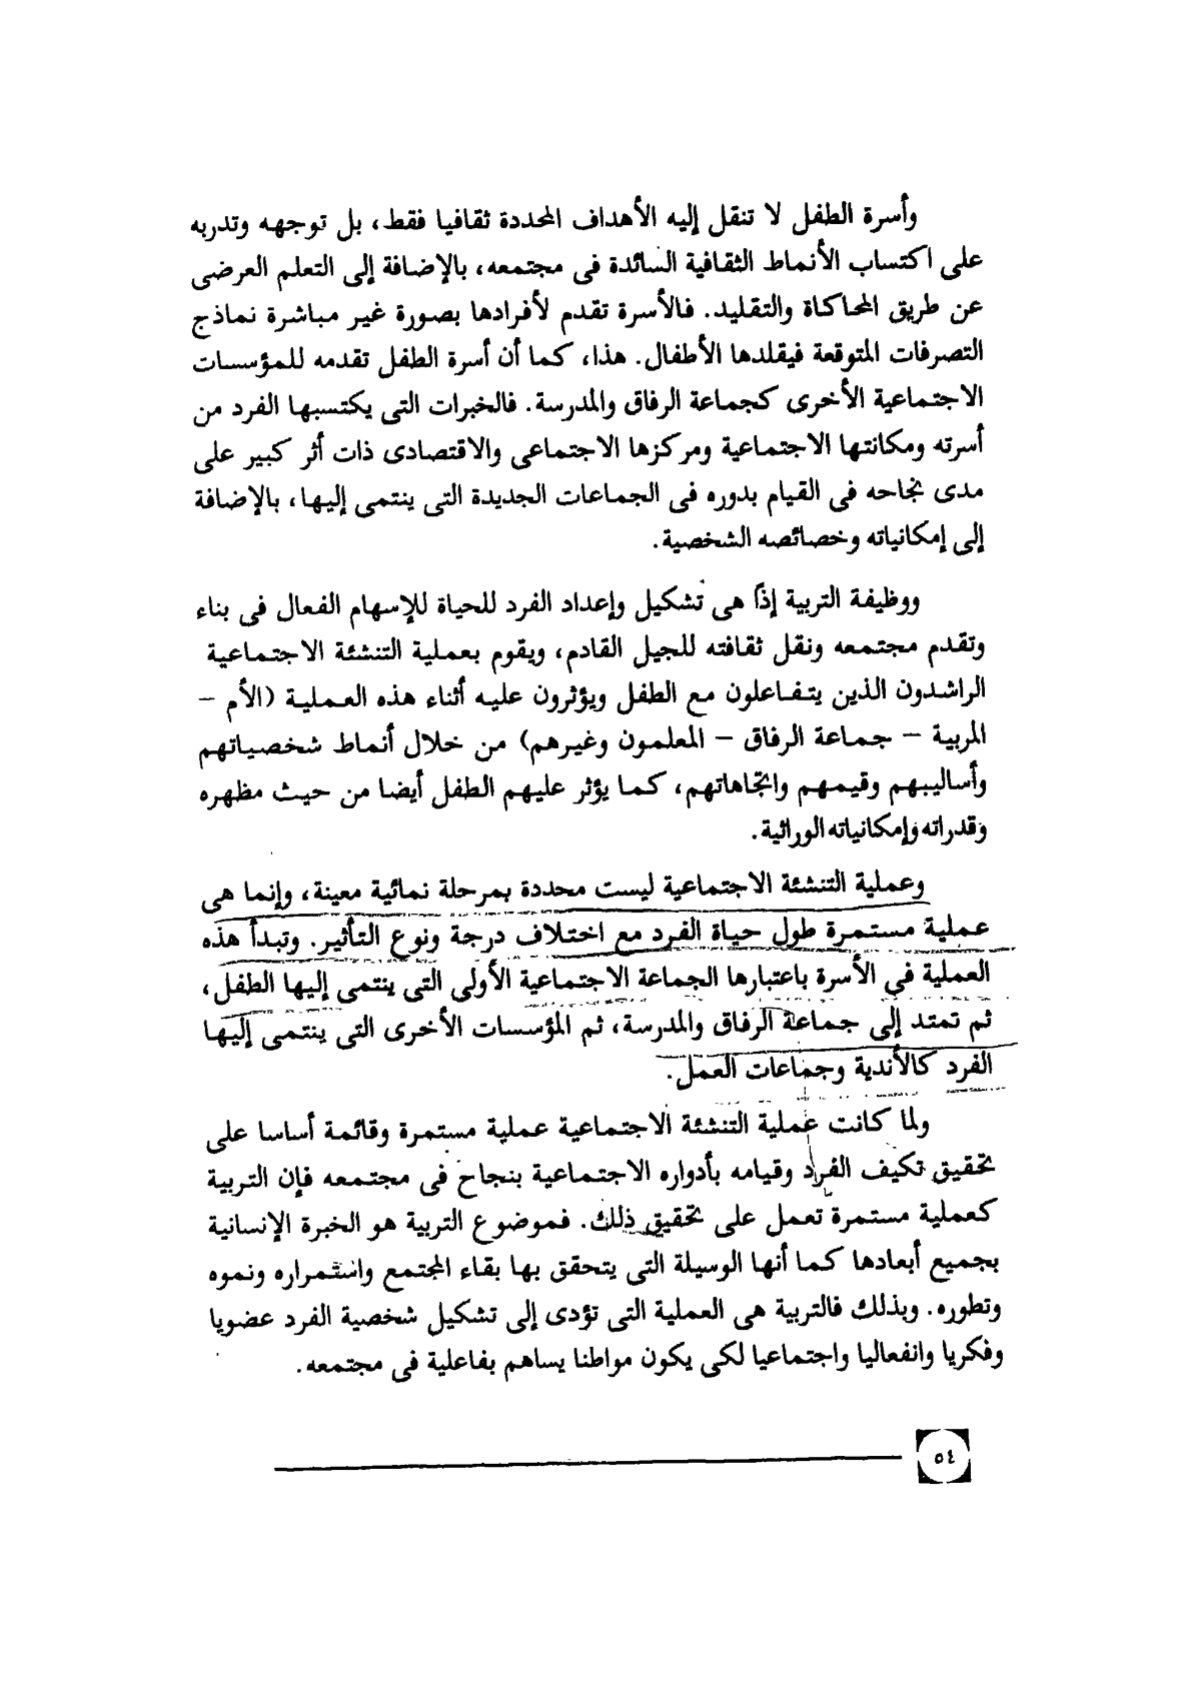 وأسرة الطفل لا تنقل إليه الأهداف المحددة ثقافيا فقط، بل توجهه وتدربه
على اكتساب الأنماط الثقافية السائدة فى مجتمعه، بالإضافة إلى التعلم العرضى
عن طريق المحاكاة والتقليد. فالأسرة تقدم لأفرادها بصورة غير مباشرة نماذج
التصرفات المتوقعة فيقلدها الأطفال. هذا، كما أن أسرة الطفل تقدمه للمؤسسات
الاجتماعية الأخرى كجماعة الرفاق والمدرسة. فالخبرات التى يكتسبها الفرد من
أسرته ومكانتها الاجتماعية ومركزها الاجتماعى والاقتصادى ذات أثر كبير على
مدى نجاحه فى القيام بدوره فى الجماعات الجديدة التى ينتمى إليها، بالإضافة
إلى إمكانياته وخصائصه الشخصية.
ووظيفة التربية إذاً هى تشكيل وإعداد الفرد للحياة للإسهام الفعال فى بناء
وتقدم مجتمعه ونقل ثقافته للجيل القادم، ويقوم بعملية التنشئة الاجتماعية
الراشدون الذين يتفاعلون مع الطفل ويؤثرون عليه أثناء هذه العملية (الأم –
المربية – جماعة الرفاق – المعلمون وغيرهم) من خلال أنماط شخصياتهم
وأساليبهم وقيمهم واتجاهاتهم، كما يؤثر عليهم الطفل أيضا من حيث مظهره
وقدراته وإمكانياته الوراثية.
وعملية التنشئة الاجتماعية ليست محددة بمرحلة نمائية معينة، وإنما هى
عملية مستمرة طول حياة الفرد مع اختلاف درجة ونوع التأثير. وتبدأ هذه
العملية في الأسرة باعتبارها الجماعة الاجتماعية الأولى التى ينتمى إليها الطفل،
ثم تمتد إلى جماعة الرفاق والمدرسة، ثم المؤسسات الأخرى التى ينتمى إليها
الفرد كالأندية وجماعات العمل.
ولما كانت عملية التنشئة الاجتماعية عملية مستمرة وقائمة أساسا على
تحقيق تكيف الفرد وقيامه بأدواره الاجتماعية بنجاح فى مجتمعه فإن التربية
كعملية مستمرة تعمل على تحقيق ذلك. فموضوع التربية هو الخبرة الإنسانية
بجميع أبعادها كما أنها الوسيلة التى يتحقق بها بقاء المجتمع واستمراره ونموه
وتطوره. وبذلك فالتربية هى العملية التى تؤدى إلى تشكيل شخصية الفرد عضويا
وفكريا وانفعاليا واجتماعيا لكى يكون مواطنا يساهم بفاعلية فى مجتمعه.
٥٤